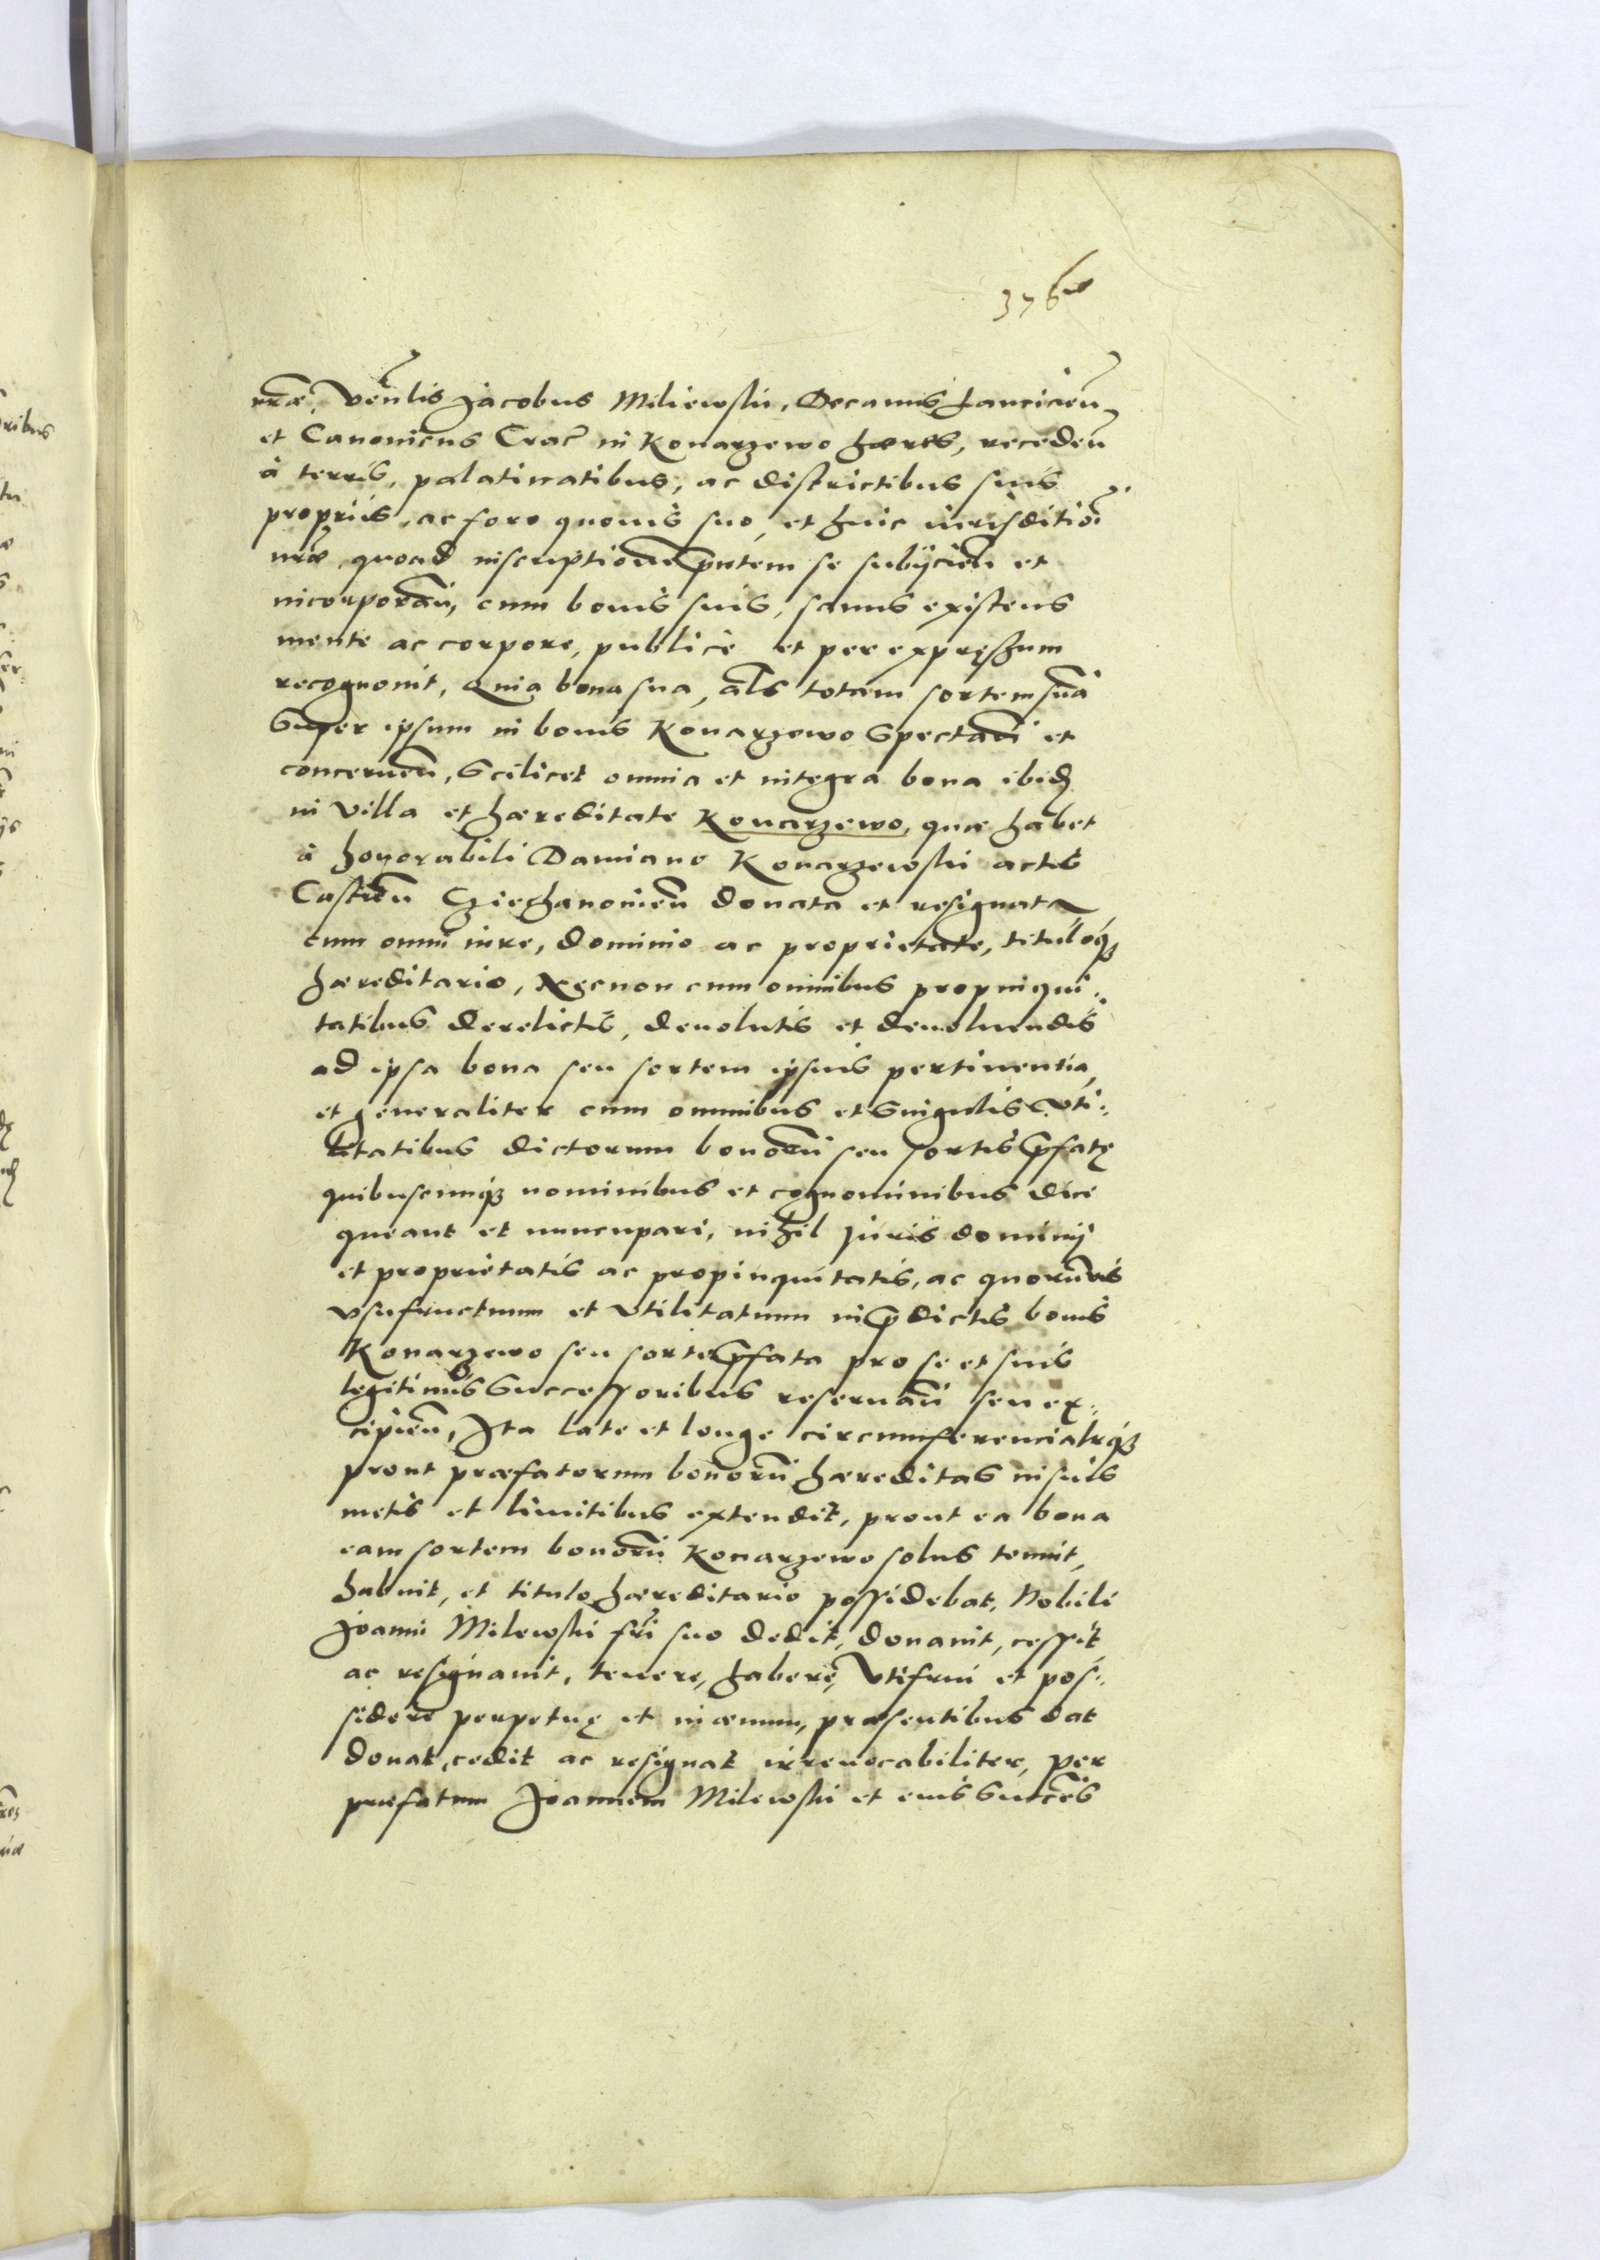 376
nrae, Venlis Jacobus Miliewski, Decanus Lancicien̄,
et Canonicus Crac̄ in Konarzewo haeres, receden̄
à terris, palatinatibus, ac districtibus suis
proprijs, ac foro quovis suo, et huic iurisditiōi
nrae quoad inscriptionem pn̄tem se subijcien̄ et
incorporan̄, cum bonis suis, sanus existens
mente ac corpore, publicè et per expręssum
recognovit, Quia bona sua, als totam sortem suā
Super ipsum in bonis Konarzewo Spectan̄ et
concernen̄, Scilicet omnia et integra bona ibid̄
in Villa et haereditate Konarzewo, quae habet
à honorabili Damiano Konarzewski actis
Castren̄ Cziechanonien̄ donata et resignata
cum omni iure, dominio ac proprietate, tituloq̨
haereditario, Necnon cum omnibus propinqui:
tatibus derelictis, devolutis et devoluendis
ad ipsa bona seu sortem ipsius pertinentia,
et generaliter cum omnibus et Singulis Vti:
litatibus dictorum bonorū seu sortis p̄fatę
quibuscumq̨ nominibus et cognominibus dici
queant et nuncupari, nihil Juris dominij
et proprietatis ac propinquitatis, ac quorūvis
Vsufructuum et Vtilitatum in p̄dictis bonis
Konarzewo seu sorte p̄fata pro se et suis
legitimis Successoribus reservan̄ seu ex:
cipien̄, Ita late et longe circumferencialrq̨
prout praefatorum bonorū haereditas in suis
metis et limitibus extendit, prout ea bona
eam sortem bonorū Konarzewo solus tenuit,
habuit, et titulo haereditario possidebat, Nobili
Joanni Milewski fr̄i suo dedit, donavit, cessit
ac resignavit, tenere, habere, Vtifrui et pos:
sidere perpetuę et in aevum, praesentibus dat
donat, cedit ac resignat irrevocabiliter, per
praefatum Joannem Milewski et eius Succ̄es